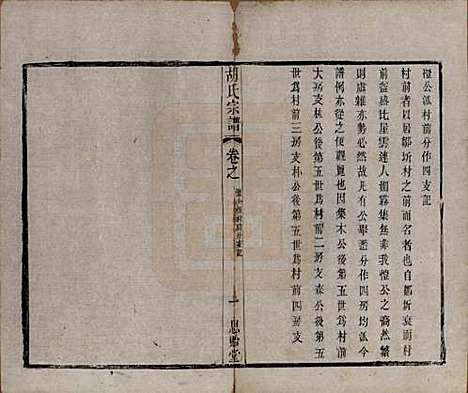 橙公派村前分作四支記
村前者以居鄒圻村之前而得名自鄒圻衰而村
前盛比屋雲連人煙霧集無非我橙公之裔然繁
則慮雜亦勢必然故凡有公舉悉分作四房均派今
譜例亦從之便觀覽也因集木公後第五世為村前
大房支林公後第五世為村前二房支森公後第五
世為村前三房支朴公後第五世為村前四支
胡氏宗譜
卷之
一
思貽堂